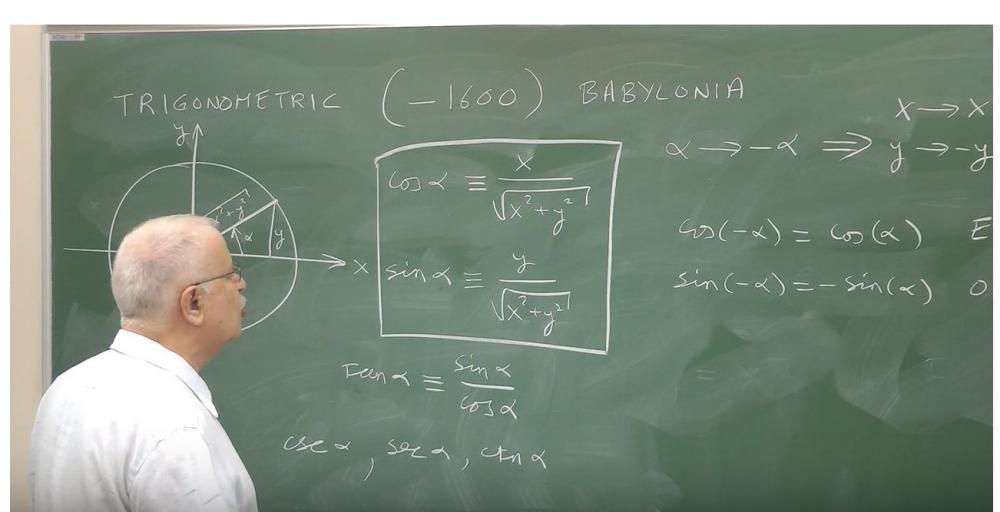 TRIGONOMETRIC (-1600) BABYLONIA
y
x² + y²
α
y
x
cos α ≡ x / √(x² + y²)
sin α ≡ y / √(x² + y²)
tan α ≡ sin α / cos α
csc α, sec α, ctn α
x → x
α → -α ⇒ y → -y
cos(-α) = cos(α) E
sin(-α) = - sin(α) O